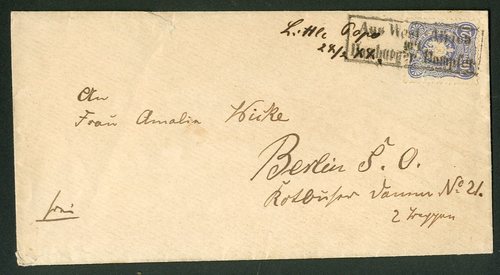 Little Popo
Aus West-Africa
mit
Hamburger Dampfer
An
Frau Amalia Wicke
Berlin S. O.
Kotbuser Damm No 21.
2 Treppen
frei